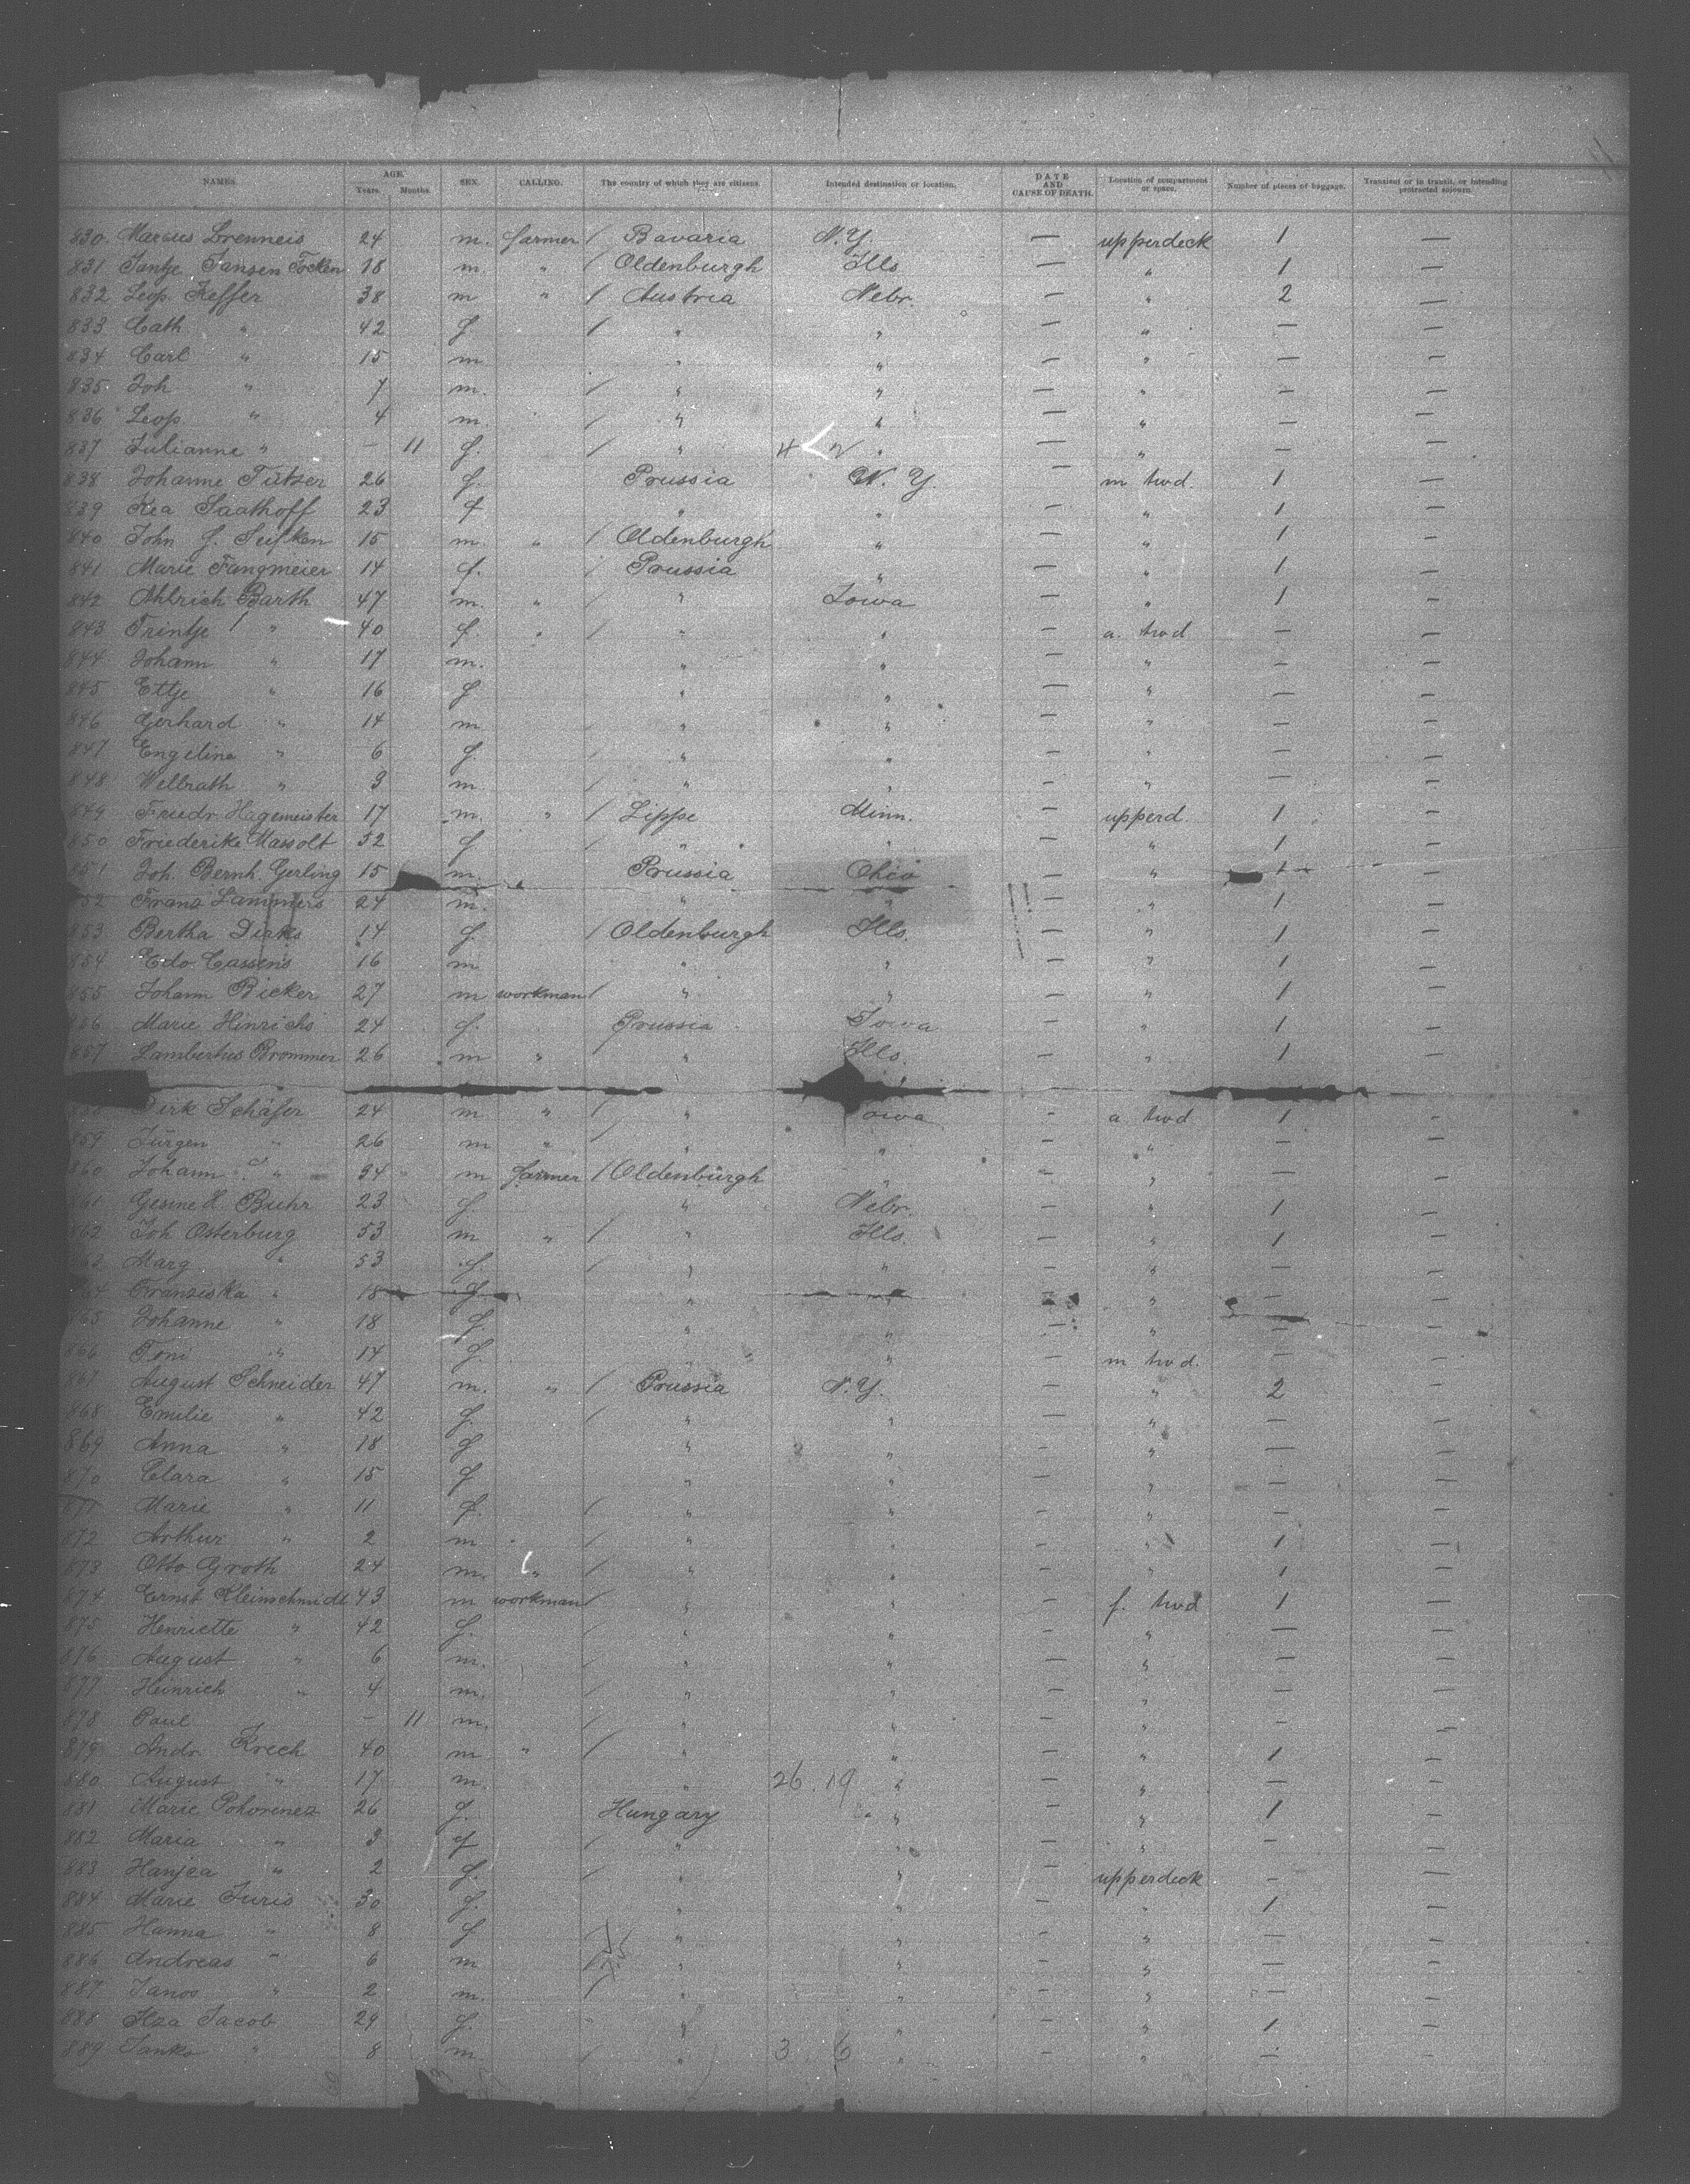 NAMES. AGE. Years. Months. SEX. CALLING. The country of which they are citizens. Intended destination or location. DATE AND CAUSE OF DEATH. Location of compartment or space. Number of pieces of baggage. Transient or in transit, or intending protracted sojourn.
830. Marcus Lrenneis 24 m. farmer / Bavaria N.Y. — upperdeck 1 —
831 Jantje Jansen Focken 18 m. " / Oldenburgh Ills — " 1 —
832 Leop. Keffer 38 m " / Austria Nebr. — " 2 —
833 Cath " 42 f / " " — " — —
834 Carl " 15 m " " — " — —
835 Joh " 7 m. / " " — " — —
836 Leop. " 4 m. / " " — " — —
837 Julianne " — 11 f. / " 4 < 2 " — " — —
838 Johanne Tützer 26 f. Prussia N. Y. — m twd. 1 —
839 Kea Saathoff 23 f " " — " 1 —
840 John G. Seifken 15 m. " / Oldenburgh " — " 1 —
841 Marie Fangmeier 14 f. / Prussia " — " 1 —
842 Ahlrich Barth 47 m. " / " Iowa — " 1 —
843 Trintje " 40 f. " / " " — a. twd — —
844 Johann " 17 m. " " — " — —
845 Ettje " 16 f " " — " — —
846 Gerhard " 14 m / " " — " — —
847 Engeline " 6 f. / " " — " — —
848 Wellrath " 3 m. / " " — " — —
849 Friedr. Hagemeister 17 m. " / Lippe Minn. — upperd. 1 —
850 Friederike Massolt 52 f " " — " 1 —
851 Joh. Bernh. Gerling 15 m. Prussia Ohio — " 1 —
852 Franz Lammers 24 m. " " — " 1 —
853 Bertha Dirks 14 f. / Oldenburgh Ills. — " 1 —
854 Edo Cassens 16 m " " — " 1 —
855 Johann Bicker 27 m workman / " " — " 1 —
856 Marie Hinrichs 24 f. Prussia Iowa — " 1 —
857 Lambertus Brommer 26 m " " Ills. — " 1 —
858 Dirk Schäfer 24 m " / " Iowa - a twd 1 -
859 Jürgen " 26 m " / " " — " — —
860 Johann " 34 m farmer / Oldenburgh " — " — —
861 Gesine H. Buhr 23 f. " Nebr. — " 1 —
862 Joh Osterburg 53 m " / " Ills. — " 1 —
863 Marg " 53 f / " " — " — —
864 Franziska " 18 f " " — " — —
865 Johanne " 18 f " " — " — —
866 Toni " 14 f. " " — m twd. — —
867 August Schneider 47 m. " / Prussia N.Y. — " 2 —
868 Emilie " 42 f. / " " — " — —
869 Anna " 18 f " " — " — —
870 Clara " 15 f " " — " — —
871 Marie " 11 f. / " " — " — —
872 Arthur " 2 m / " " — " 1 —
873 Otto Groth 24 m. " / " " — " 1 —
874 Ernst Kleinschmidt 43 m workman / " " — f. twd 1 —
875 Henriette " 42 f. / " " — " — —
876 August " 6 m. / " " — " — —
877 Heinrich " 4 m. / " " — " — —
878 Paul — 11 m. / " " — " — —
879 Andr. Krech 40 m " / " " — " 1 —
880 August " 17 m. " 26. 19 " — " — —
881 Marie Pohorenez 26 f. Hungary " — " 1 —
882 Maria " 3 f / " " — " — —
883 Hanjca " 2 f. / " " — upperdeck — —
884 Marie Juris 30 f. " " — " 1 —
885 Hanna " 8 f / " " — " — —
886 Andreas " 6 m / " " — " — —
887 Janos " 2 m. / " " — " — —
888 Ilza Jacob 29 f. " " — " 1 —
889 Janko " 8 m / " 3 6 " — " — —